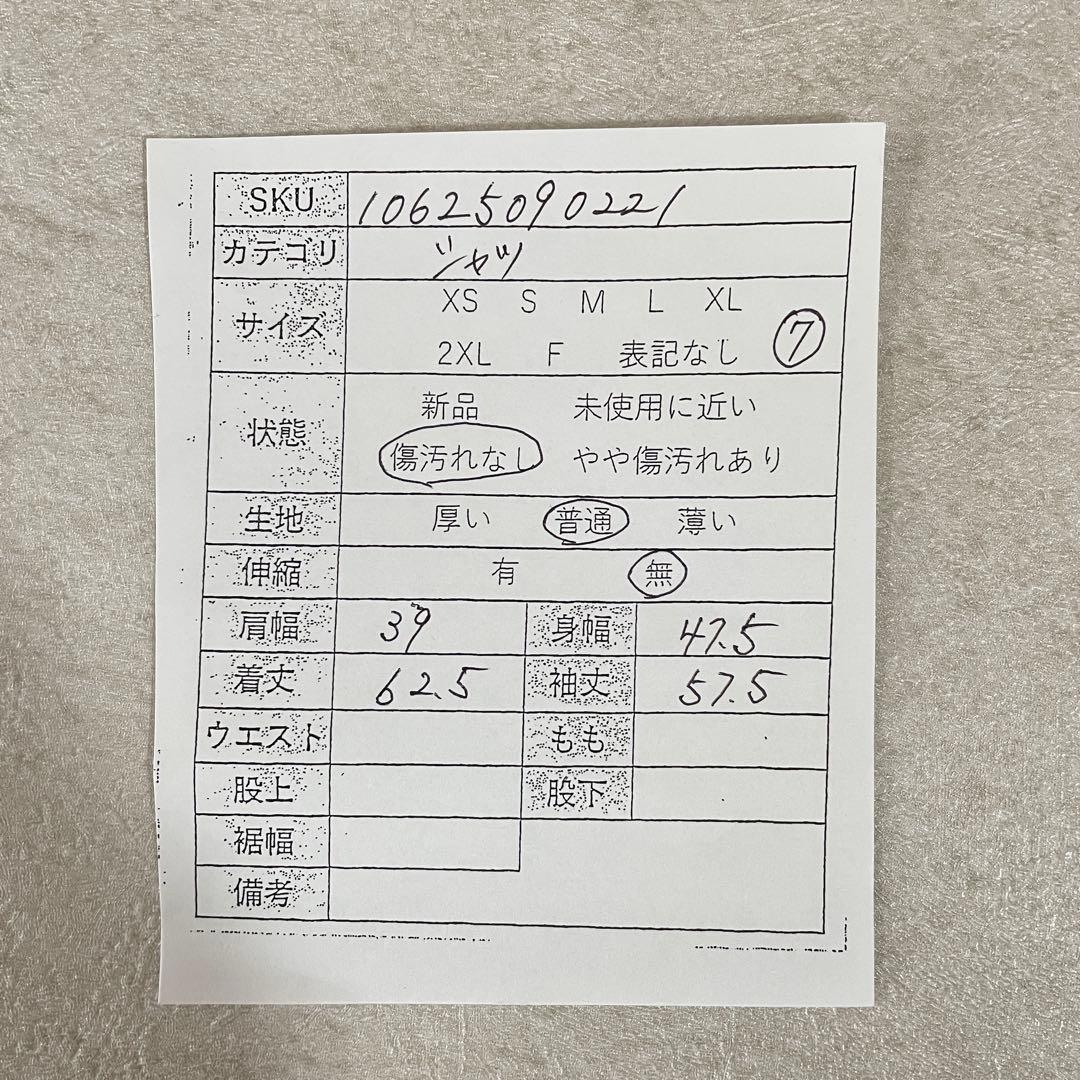 SKU 10625090221
カテゴリ シャツ
サイズ XS S M L XL
2XL F 表記なし 7
状態 新品 未使用に近い
傷汚れなし やや傷汚れあり
生地 厚い 普通 薄い
伸縮 有 無
肩幅 39 身幅 47.5
着丈 62.5 袖丈 57.5
ウエスト もも
股上 股下
裾幅
備考